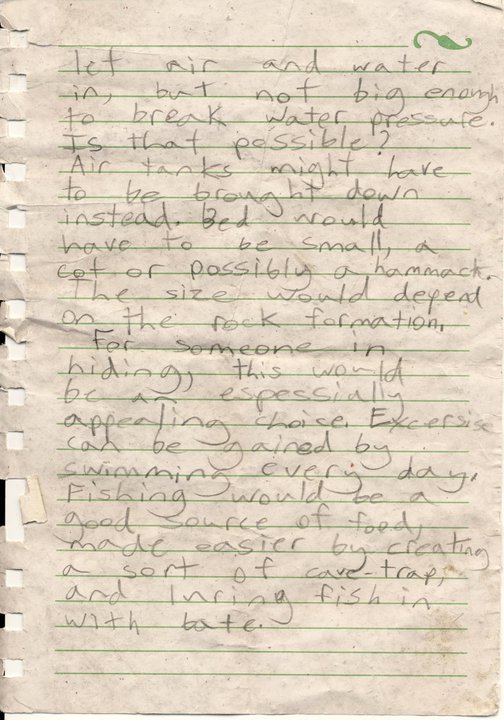 let air and water
in, but not big enough
to break water pressure.
Is that possible?
Air tanks might have
to be brought down
instead. Bed would
have to be small, a
cot or possibly a hammack.
The size would depend
on the rock formation.
For someone in
hiding, this would
be an espessially
appealing choice. Excersise
can be gained by
swimming every day.
Fishing would be a
good source of food,
made easier by creating
a sort of cave-trap,
and luring fish in
with bate.